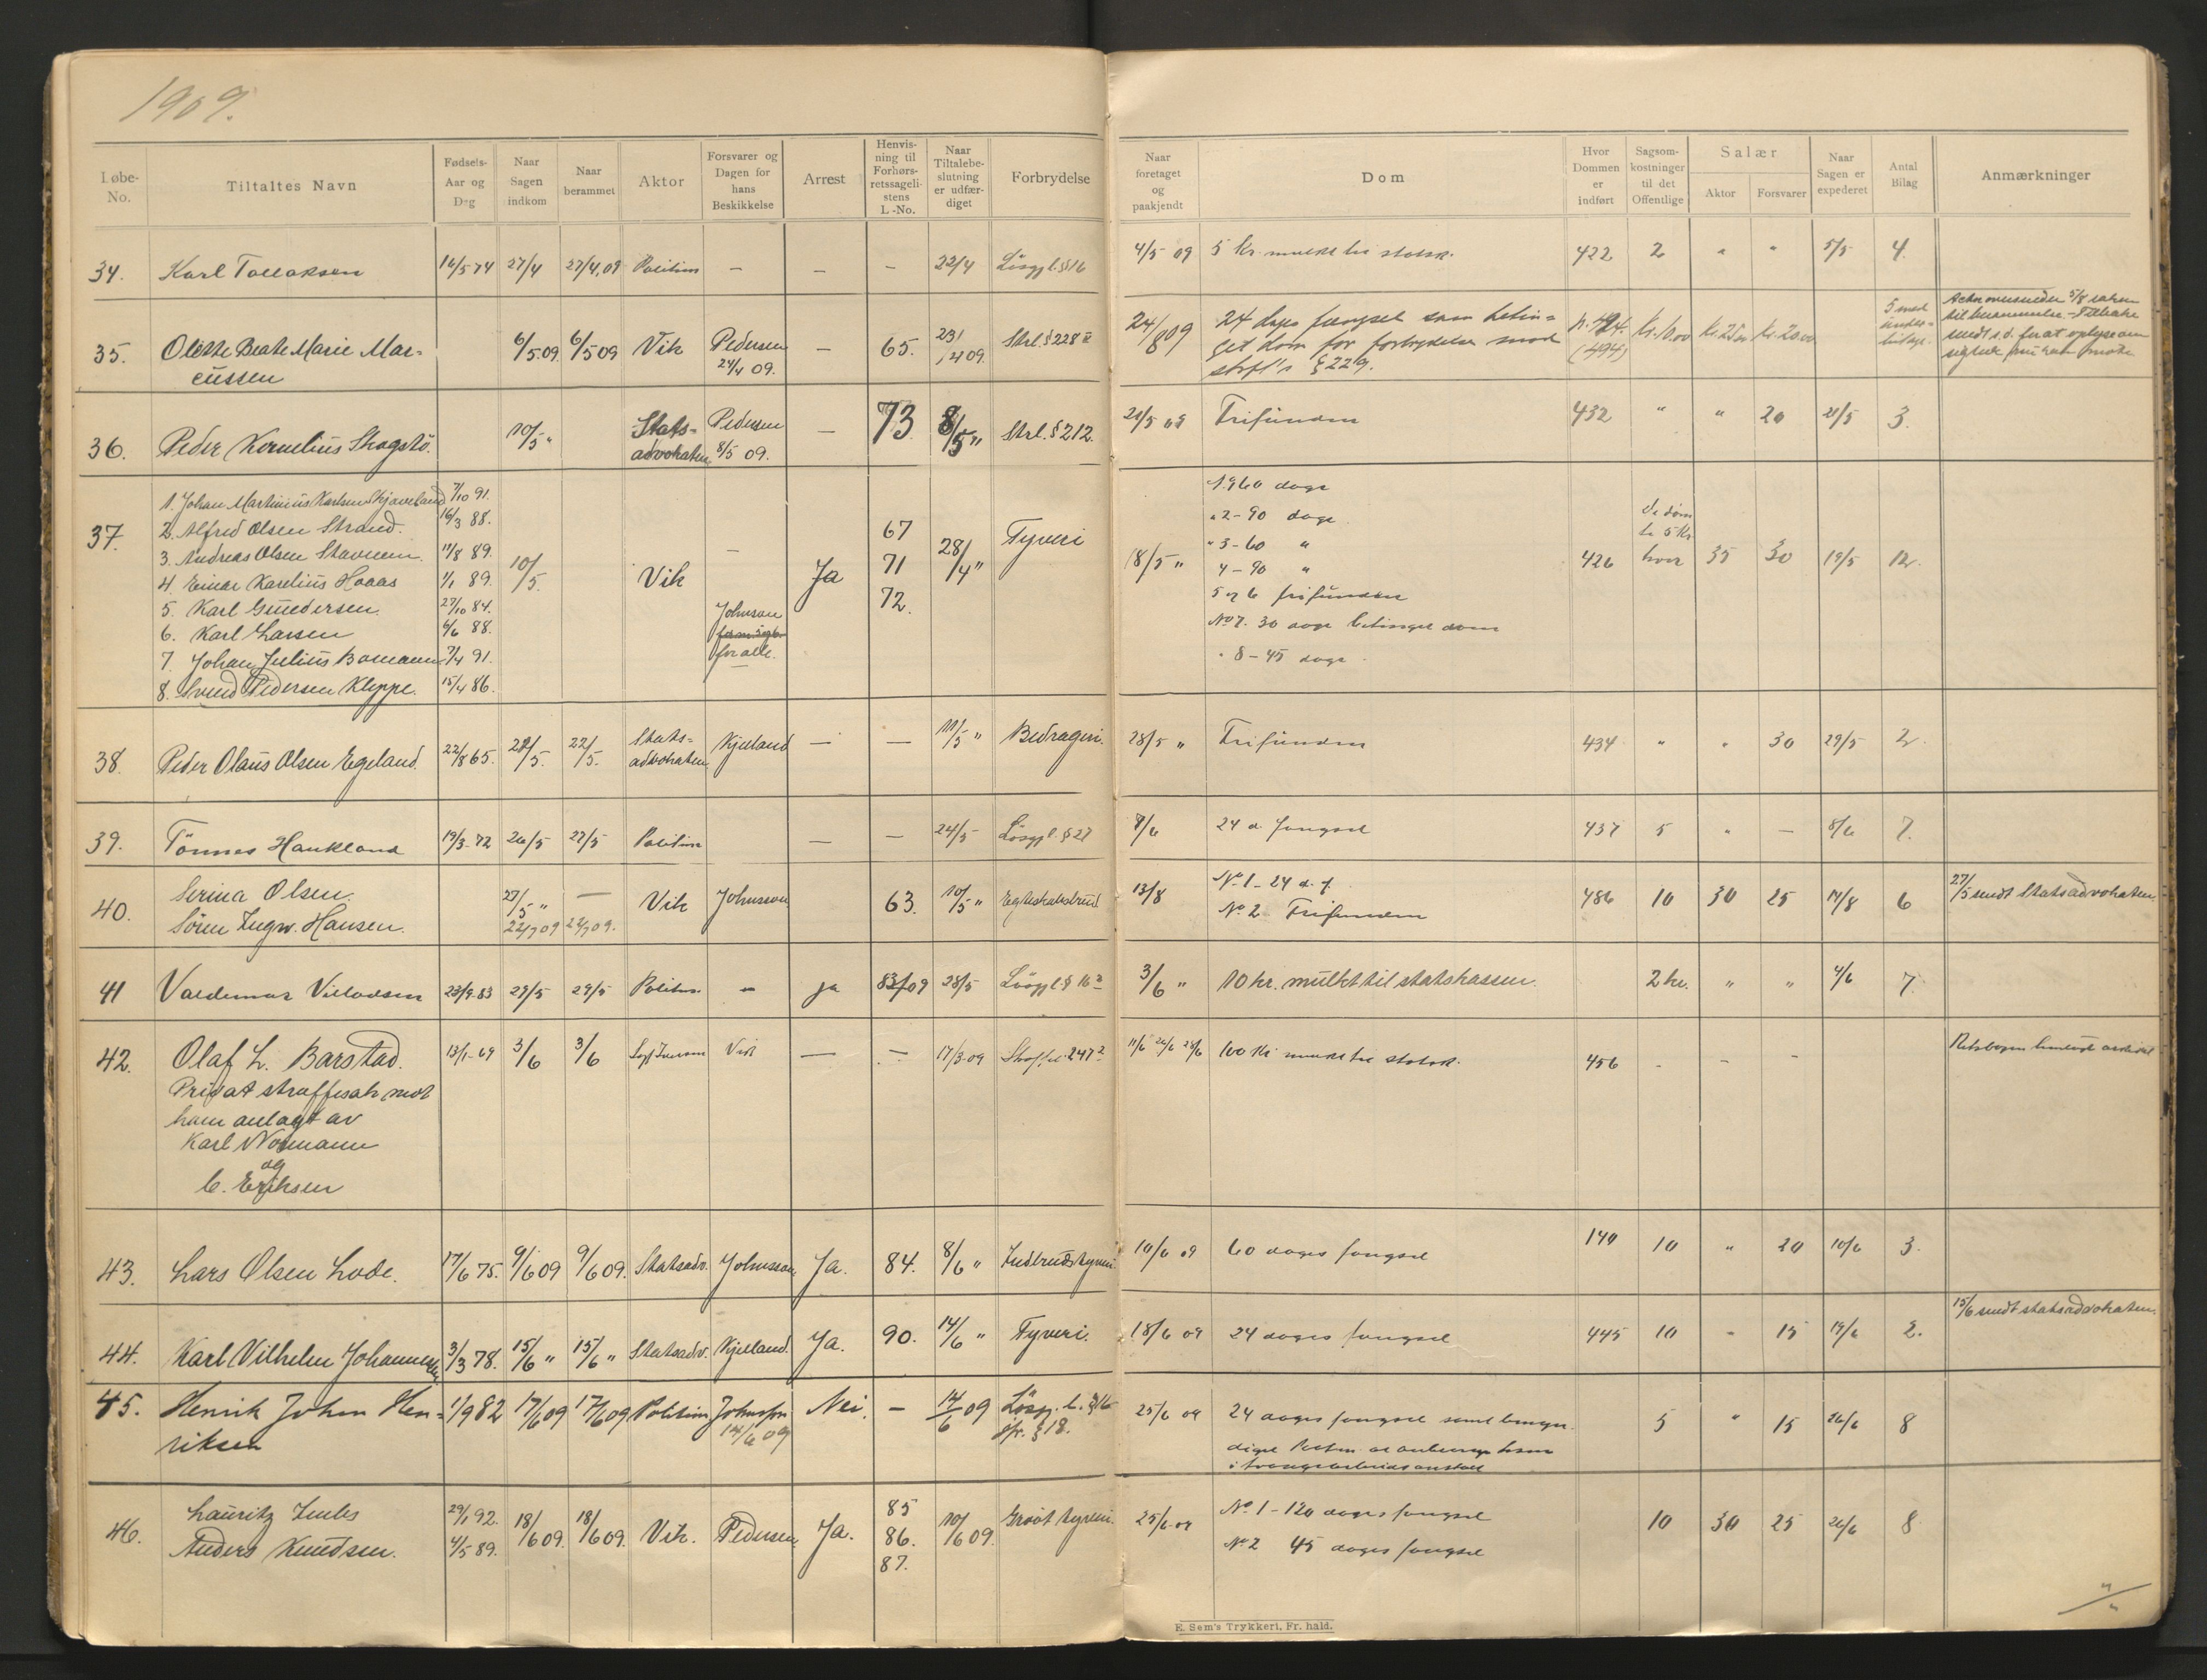 1909.
Løbe-No. Tiltaltes Navn Fødsels-Aar og Dag Naar Sagen indkom Naar berammet Aktor Forsvarer og Dagen for hans Beskikkelse Arrest Henvisning til Forhørsretssagelistens L.-No. Naar Tiltalebeslutning er udfærdiget Forbrydelse Naar foretaget og paakjendt Dom Hvor Dommen er indført Sagsomkostninger til det Offentlige Salær Aktor Forsvarer Naar Sagen er expederet Antal Bilag Anmærkninger
34. Karl Tollaksen 16/5 74 27/4 27/4 09 Politiets — — — 22/4 Løsgjl. § 16 4/5 09 5 kr. mulkt til statsk. 422 2 " " 5/5 4.
35. Olette Beate Marie Mar= 6/5 09. 6/5 09 Vik Pedersen — 65. 23/4 09. Strl. § 228 II 24/8 09 24 dages fængsel som betin=
cussen 24/4 09. get dom for forbrydelse mod
strfl's § 229. p. 494. (494) kr. 10.00 kr. 25.00 kr. 20.00 5 med
36. Peder Kornelius Skagstø. 10/5 " Stats= Pedersen — 73 8/5 " Strl. § 212. 21/5 09 Frifunden 432 " " 20 21/5 3.
advokaten 8/5 09.
37. 1. Johan Martinius Karlsen Kjaveland 7/10 91. 1. 60 dage
2. Alfred Olsen Strand. 16/3 88. " 2 - 90 dage
3. Andreas Olsen Stavnem. 11/8 89. 10/5. Vik — Ja 67 71 72. 28/4 " Tyveri 18/5 " " 3 - 60 " 426 hver 35 30 19/5 12.
4. Einar Karelius Haaas 1/1 89. 4 - 90 "
5. Karl Gundersen. 27/10 84. Johnson 5 og 6 frifunden
6. Karl Larsen 6/6 88. No 7. 30 dage betinget dom
7. Johan Julius Bomann 7/4 91. for alle. " 8 - 45 dage.
8. Svend Pedersen Kleppe. 15/4 86.
38. Peder Olaus Olsen Egeland. 22/8 65. 21/5. 22/5. Stats= advokaten Kjelland — — 11/5 " Bedrageri. 28/5 " Frifunden 434 " " 30 29/5 2.
39. Tönnes Haukland 19/3-72 26/5 27/5 Politiets — — 24/5 Løsgjl. § 27 8/6 24 d. fængsel 437 5 " — 8/6 7.
40. Serina Olsen. 27/5 " — Vik Johnsson 63. 10/5 " Egteskabsbrud 13/8 No 1 - 24 d. f. 486 10 30 25 14/8 6 27/5 sendt Statsadvokaten.
Sören Ingw. Hansen. 22/7 09 22/7 09. No 2 Frifunden
41 Valdemar Villadsen 23/9 83 29/5 29/5 Politiets — ja 83/09 28/5 Løsgjl. § 16 3/6 " 10 kr. mulkt til statskassen. 2 kr. " " 4/6 7.
42. Olaf L. Barstad. 13/1-69 3/6 3/6 Vik — — 17/3 09 247 11/6 100 kr mulkt til statsk. 456 - - -
Privat straffesak mot
ham anlagt av
Karl Normann
og
C. Eriksen
43. Lars Olsen Lode. 17/6 75. 9/6 09 9/6 09. Statsadv. Johnsson Ja. 84. 8/6 " Indbrudstyveri. 10/6 09 60 dages fængsel 140 10 " 20 10/6 3.
44. Karl Vilhelm Johannesen 3/3 78. 15/6 " 15/6 " Statsadv. Kjelland. Ja. 90. 14/6 " Tyveri. 18/6 09 24 dages fængsel 445 10 " 15 19/6 2. 15/6 sendt statsadvokaten.
45. Henrik Johan Hen= 1/9 82 17/6 09 17/6 09 Politiets Johnsson Nei. — 14/6 09 Løsgj. l. § 16 25/6 09 24 dages fængsel samt 5 " 15 26/6 8
riksen 14/6 09 jfr. § 18.
i tvangsarbeidsanstalt
46. Lauritz Jenles 29/1 92. 18/6 09. 18/6 09. Vik. Pedersen Ja. 85 86. 87. 10/6 09. Grovt tyveri. 25/6 09 No 1 - 120 dages fængsel 10 30 25 26/6 8
Anders Knudsen. 4/5 89. No 2 45 dages fængsel
E. Sem's Trykkeri, Fr. hald.